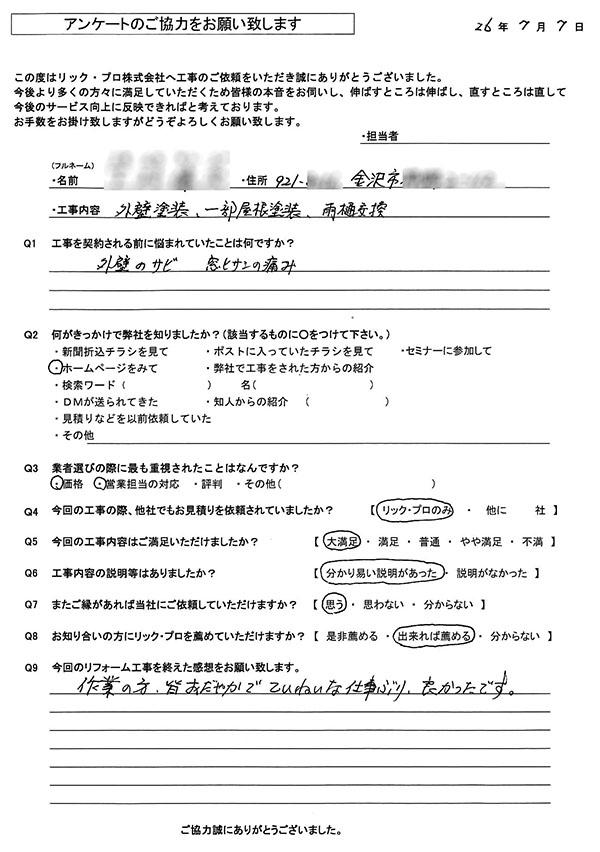 アンケートのご協力をお願い致します
26年7月7日
この度はリック・プロ株式会社へ工事のご依頼をいただき誠にありがとうございました。
今後より多くの方々に満足していただくため皆様の本音をお伺いし、伸ばすところは伸ばし、直すところは直して
今後のサービス向上に反映できればと考えております。
お手数をお掛け致しますがどうぞよろしくお願い致します。
・担当者
(フルネーム)
・名前 ・住所 921- 金沢市
・工事内容 外壁塗装、一部屋根塗装、雨樋交換
Q1 工事を契約される前に悩まれていたことは何ですか?
外壁のサビ 窓ヒサシの痛み
Q2 何がきっかけで弊社を知りましたか?(該当するものに〇をつけて下さい。)
・新聞折込チラシを見て ・ポストに入っていたチラシを見て ・セミナーに参加して
・ホームページをみて ・弊社で工事をされた方からの紹介
・検索ワード ( ) 名( )
・DMが送られてきた ・知人からの紹介 ( )
・見積りなどを以前依頼していた
・その他
Q3 業者選びの際に最も重視されたことはなんですか?
・価格 ・営業担当の対応 ・評判 ・その他( )
Q4 今回の工事の際、他社でもお見積りを依頼されていましたか? 【 リック・プロのみ ・ 他に 社 】
Q5 今回の工事内容はご満足いただけましたか? 【 大満足 ・ 満足 ・ 普通 ・ やや満足 ・ 不満 】
Q6 工事内容の説明等はありましたか? 【 分かり易い説明があった ・ 説明がなかった 】
Q7 またご縁があれば当社にご依頼していただけますか? 【 思う ・ 思わない ・ 分からない 】
Q8 お知り合いの方にリック・プロを薦めていただけますか? 【 是非薦める ・ 出来れば薦める ・ 分からない 】
Q9 今回のリフォーム工事を終えた感想をお願い致します。
作業の方、皆おだやかでていねいな仕事ぶり、良かったです。
ご協力誠にありがとうございました。